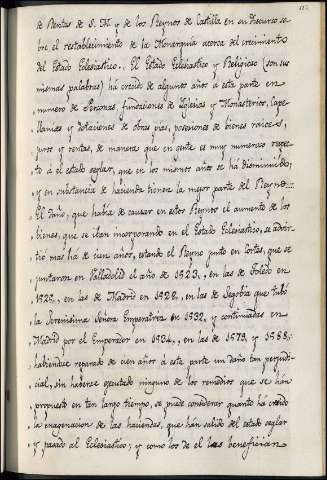 de Rentas de S. M. y de los Reynos de Castilla en su discurso so
bre el restablecimiento de la Monarquía acerca del crecimiento
del Estado Eclesiastico.. El Estado Eclesiastico y Religioso (son sus
mismas palabras) há crecido de algunos años a esta parte en
numero de Personas, fundaciones de Iglesias y Monasterios, Cape
llanias y dotaciones de obras pias, posesiones de bienes raices,
juros y rentas, de manera que en gente es muy numeroso respe
to á el estado seglar, que en los mismos años se há disminuido;
y en substancia de hacienda tienen la mejor parte del Reyno...
El daño, que havia de causar en estos Reynos el aumento de los
bienes, que se iban incorporando en el Estado Eclesiastico, se advir
tio mas há de cien años, estando el Reyno junto en Cortes, que se
juntaron en Valladolid el año de 1523., en las de Toledo en
1525., en las de Madrid en 1528., en las de Segobia que tubo
la Serenisima Señora Emperatriz en 1532, y continuadas en
Madrid por el Emperador en 1534., en las de 1573, y 1588;
habiendose reparado de cien años á esta parte un daño tan perjudi-
cial, sin haberse egecutado ninguno de los remedios que se han
propuesto en tan largo tiempo, se puede considerar quanto há crecido
la enagenacion de las haciendas, que han salido del estado seglar
y pasado al Eclesiastico; y como los de el las benefician